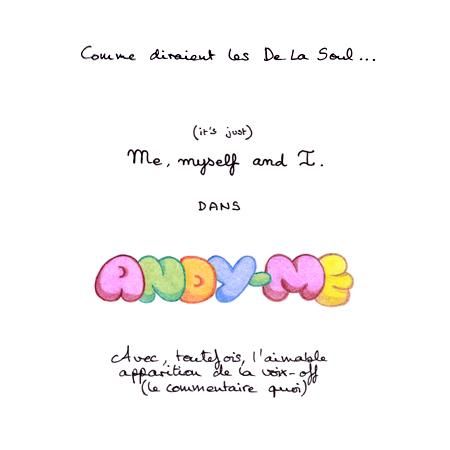 Comme diraient les De La Soul...
(it's just)
Me, myself and I.
DANS
ANDY-ME
Avec, toutefois, l'aimable
apparition de la voix-off
(le commentaire quoi)